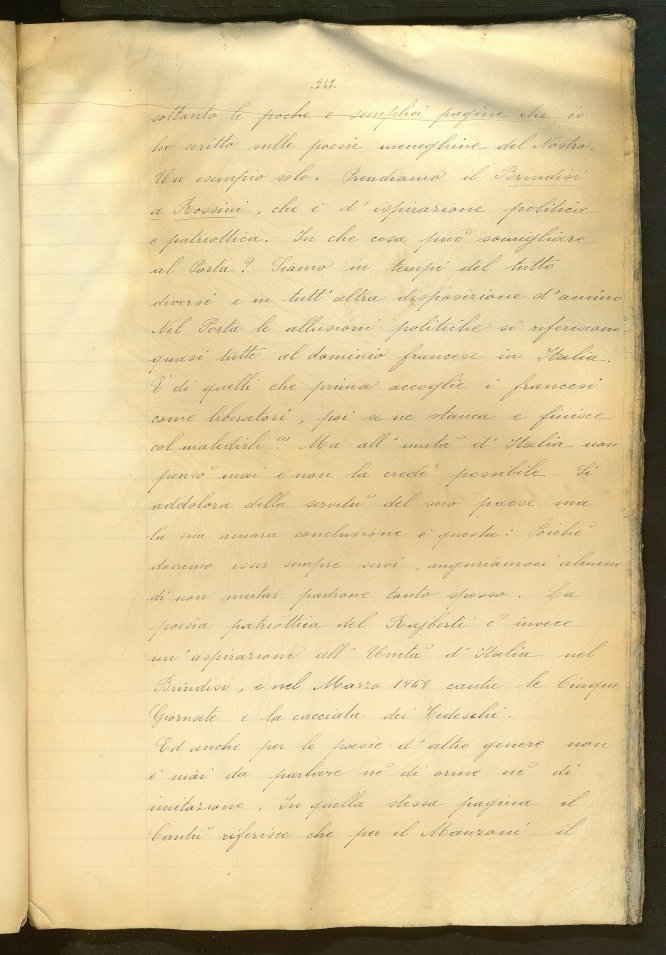 .241.
soltanto le poche e semplici pagine che io
ho scritto sulle poesie meneghine del Nostro.
Un esempio solo. Prendiamo il Brindisi
a Rossini, che è d'ispirazione politica
e patriottica. In che cosa può somigliare
al Porta? Siamo in tempi del tutto
diversi e in tutt'altra disposizione d'animo
Nel Porta le allusioni politiche si riferiscono
quasi tutte al dominio francese in Italia.
È di quelli che prima accoglie i francesi
come liberatori, poi se ne stanca e finisce
col maledirli. Ma all'unità d'Italia non
pensò mai e non la crede possibile. Si
addolora della servitù del suo paese ma
la sua amara conclusione è questa: Poichè
dovremo esser sempre servi, auguriamoci almeno
di non mutar padrone tanto spesso. La
poesia patriottica del Rajberti è invece
un'aspirazione all'Unità d'Italia nel
Brindisi, e nel Marzo 1848 canta le Cinque
Giornate e la cacciata dei Tedeschi.
Ed anche per le poesie d'altro genere non
è mai da parlare nè di orme nè di
imitazione. In quella stessa pagina il
Cantù riferisce che per il Manzoni il